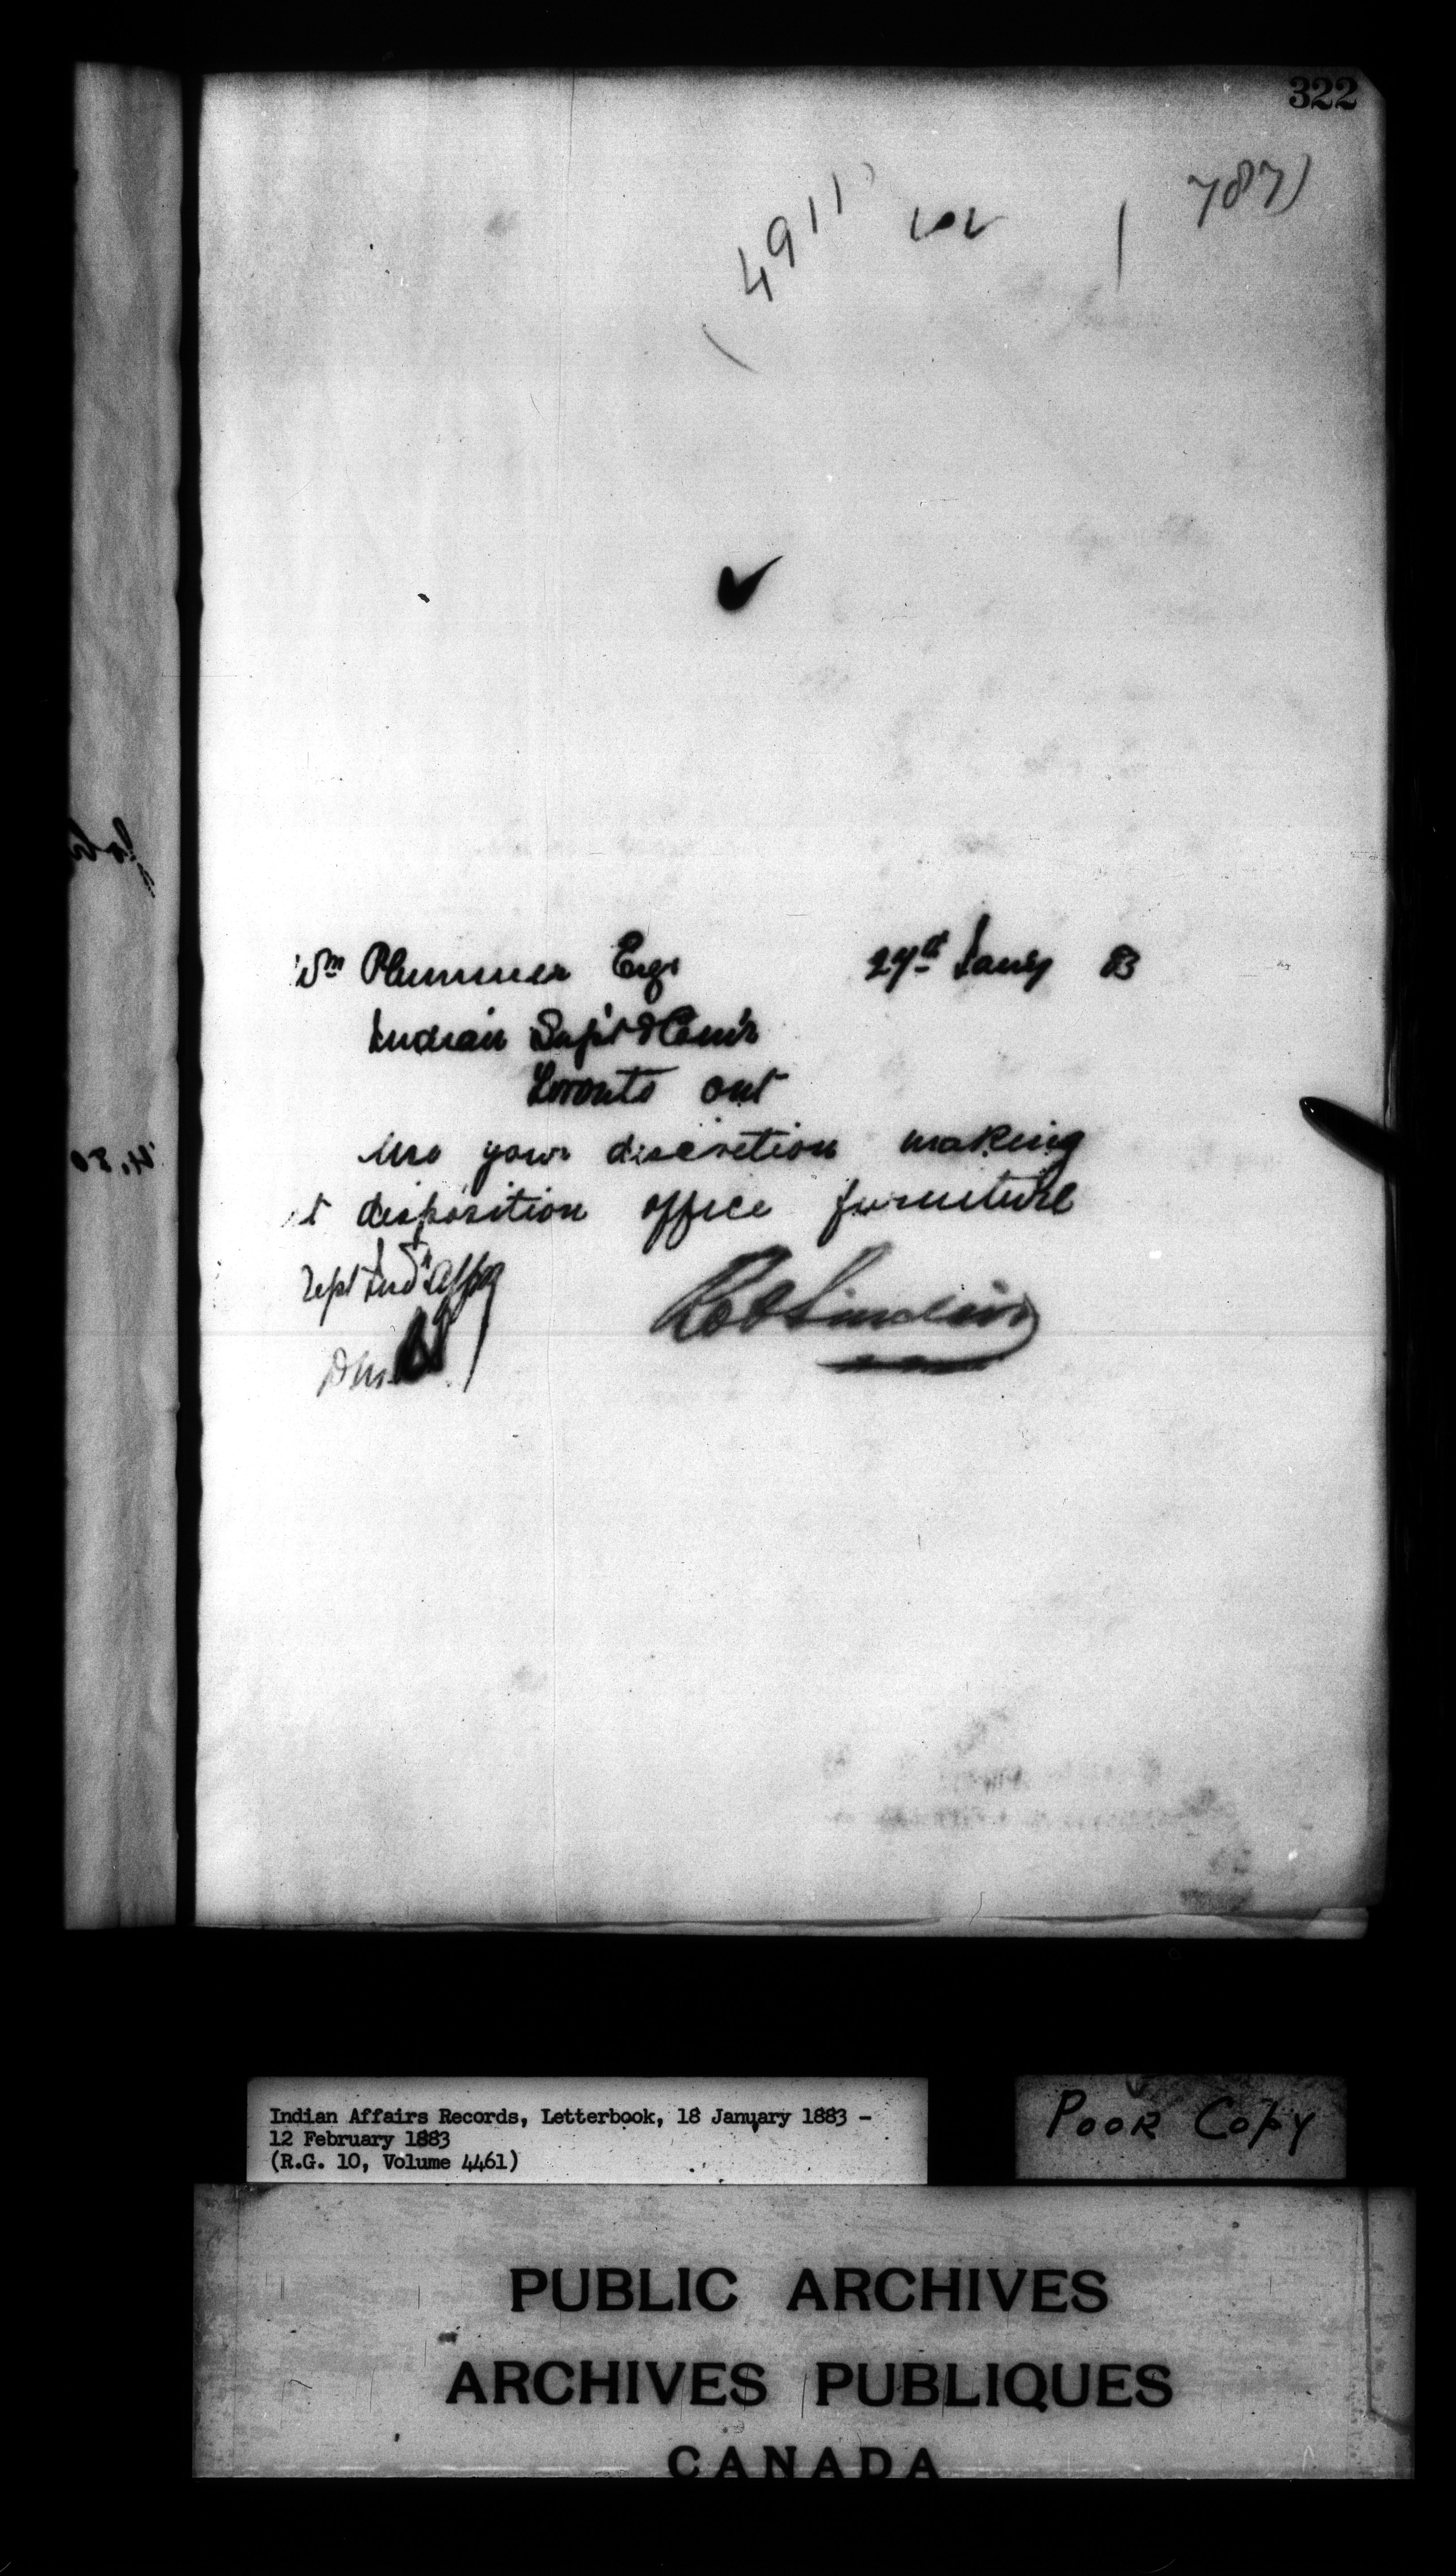 322
(4911 787)
Wm Plummer Esqr 27th Jany 83
Indian Sup't & Com'r
Toronto Ont
Use your discretion making
disposition office furniture
Dept Ind Affrs
Indian Affairs Records, Letterbook, 18 January 1883 -
12 February 1883
(R.G. 10, Volume 4461)
POOR COPY
PUBLIC ARCHIVES
ARCHIVES PUBLIQUES
CANADA